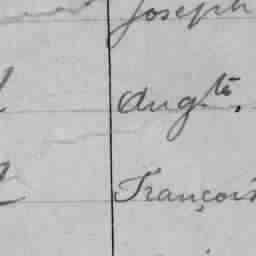 Joseph
Aug.te,
François